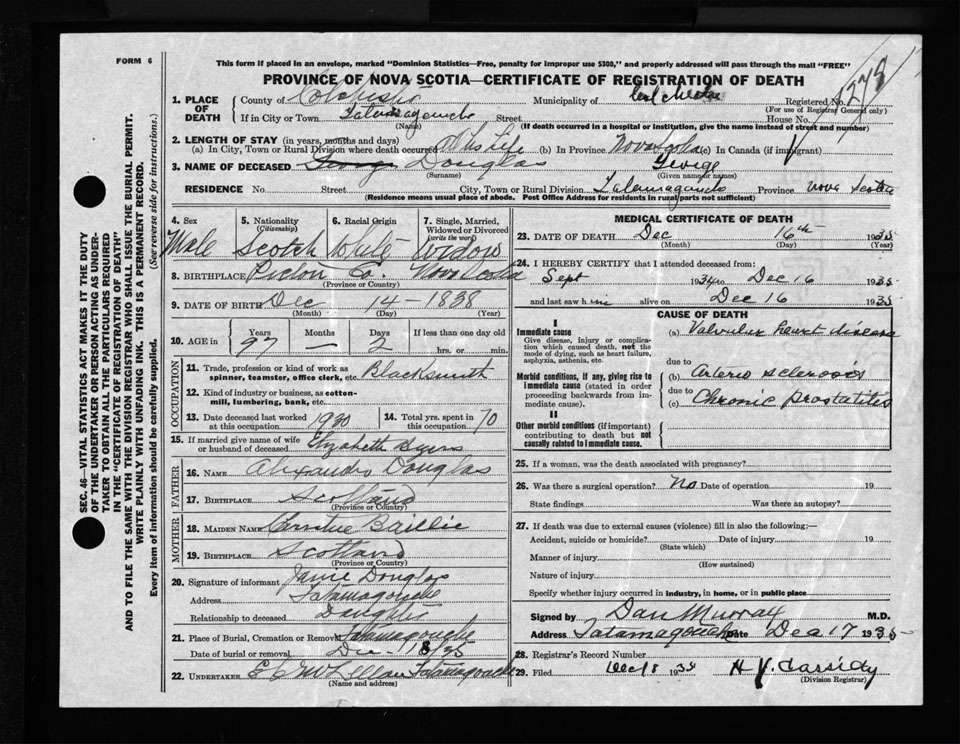 FORM 6
This form if placed in an envelope, marked "Dominion Statistics—Free, penalty for improper use $300," and properly addressed will pass through the mail "FREE"
PROVINCE OF NOVA SCOTIA—CERTIFICATE OF REGISTRATION OF DEATH
1. PLACE OF DEATH County of Colchester Municipality of Colchester Registered No. 1278
(For use of Registrar General only)
If in City or Town Tatamagouche Street House No.
(Name) (If death occurred in a hospital or institution, give the name instead of street and number)
2. LENGTH OF STAY (in years, months and days)
(a) In City, Town or Rural Division where death occurred Life (b) In Province Nova Scotia (c) In Canada (if immigrant)
3. NAME OF DECEASED Douglas George
(Surname) (Given name or names)
RESIDENCE No. Street City, Town or Rural Division Tatamagouche Province Nova Scotia
(Residence means usual place of abode. Post Office Address for residents in rural parts not sufficient)
SEC. 46—VITAL STATISTICS ACT MAKES IT THE DUTY
OF THE UNDERTAKER OR PERSON ACTING AS UNDER-
TAKER TO OBTAIN ALL THE PARTICULARS REQUIRED
IN THE "CERTIFICATE OF REGISTRATION OF DEATH"
AND TO FILE THE SAME WITH THE DIVISION REGISTRAR WHO SHALL ISSUE THE BURIAL PERMIT.
WRITE PLAINLY WITH UNFADING INK. THIS IS A PERMANENT RECORD.
Every item of information should be carefully supplied. (See reverse side for instructions.)
4. Sex 5. Nationality (Citizenship) 6. Racial Origin 7. Single, Married, Widowed or Divorced (write the word)
Male Scotch White Widow
8. BIRTHPLACE Pictou Co. Nova Scotia
(Province or Country)
9. DATE OF BIRTH Dec 14 – 1838
(Month) (Day) (Year)
10. AGE in Years Months Days If less than one day old
97 — 2 hrs. or min.
OCCUPATION
11. Trade, profession or kind of work as spinner, teamster, office clerk, etc. Blacksmith
12. Kind of industry or business, as cotton-mill, lumbering, bank, etc.
13. Date deceased last worked at this occupation 1930 14. Total yrs. spent in this occupation 70
15. If married give name of wife or husband of deceased Elizabeth Byers
FATHER
16. NAME Alexandro Douglas
17. BIRTHPLACE Scotland
(Province or Country)
MOTHER
18. MAIDEN NAME Baillie
19. BIRTHPLACE Scotland
(Province or Country)
20. Signature of informant Janie Douglas
Address Tatamagouche
Relationship to deceased Daughter
21. Place of Burial, Cremation or Removal Tatamagouche
Date of burial or removal Dec - 18/35
22. UNDERTAKER Tatamagouche
(Name and address)
MEDICAL CERTIFICATE OF DEATH
23. DATE OF DEATH Dec 16th 1935
(Month) (Day) (Year)
24. I HEREBY CERTIFY that I attended deceased from:
Sept 1934 to Dec 16 1935
and last saw him alive on Dec 16 1935
CAUSE OF DEATH
I
Immediate cause
Give disease, injury or complication which caused death, not the mode of dying, such as heart failure, asphyxia, asthenia, etc.
(a) Valvular heart disease
due to
Morbid conditions, if any, giving rise to immediate cause (stated in order proceeding backwards from immediate cause).
(b) Arterio sclerosis
due to
(c) Chronic Prostatites
II
Other morbid conditions (if important) contributing to death but not causally related to immediate cause.
25. If a woman, was the death associated with pregnancy?
26. Was there a surgical operation? No Date of operation 19
State findings Was there an autopsy?
27. If death was due to external causes (violence) fill in also the following:—
Accident, suicide or homicide? Date of injury 19
(State which)
Manner of injury
(How sustained)
Nature of injury
Specify whether injury occurred in industry, in home, or in public place
Signed by Dan Murray M.D.
Address Tatamagouche Date Dec 17 1935
28. Registrar's Record Number
29. Filed Dec 18 1935 H. Y. Cassidy
(Division Registrar)